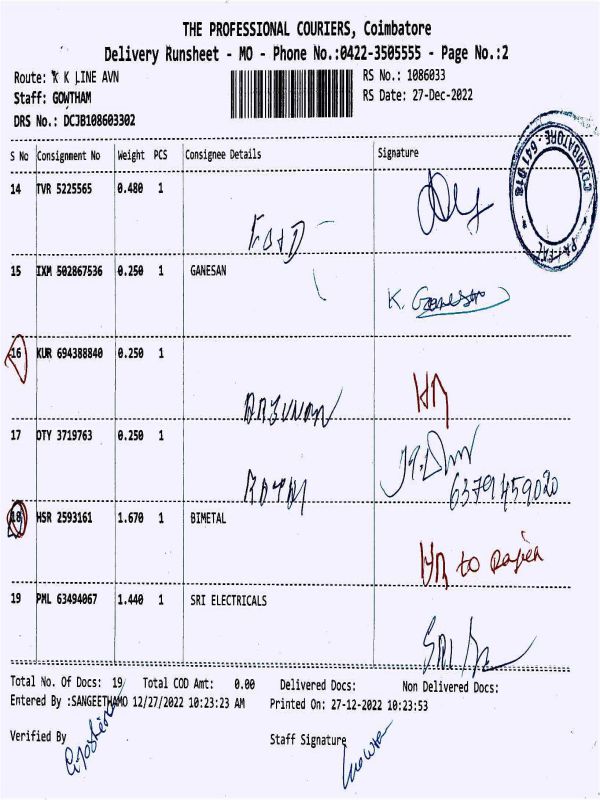 THE PROFESSIONAL COURIERS, Coimbatore
Delivery Runsheet - MO - Phone No.:0422-3505555 - Page No.:2
Route: K K LINE AVN
RS No.: 1086033
Staff: GOWTHAM
RS Date: 27-Dec-2022
DRS No.: DCJB108603302
S No Consignment No Weight PCS Consignee Details Signature
14 TVR 5225565 0.480 1
15 IXM 502867536 0.250 1 GANESAN
K. Ganesan
16 KUR 694388840 0.250 1
17 DTY 3719763 0.250 1
6379459020
18 HSR 2593161 1.670 1 BIMETAL
19 PML 63494067 1.440 1 SRI ELECTRICALS
Total No. Of Docs: 19 Total COD Amt: 0.00 Delivered Docs: Non Delivered Docs:
Entered By :SANGEETHAMO 12/27/2022 10:23:23 AM Printed On: 27-12-2022 10:23:53
Verified By Staff Signature
COIMBATORE - 641 018